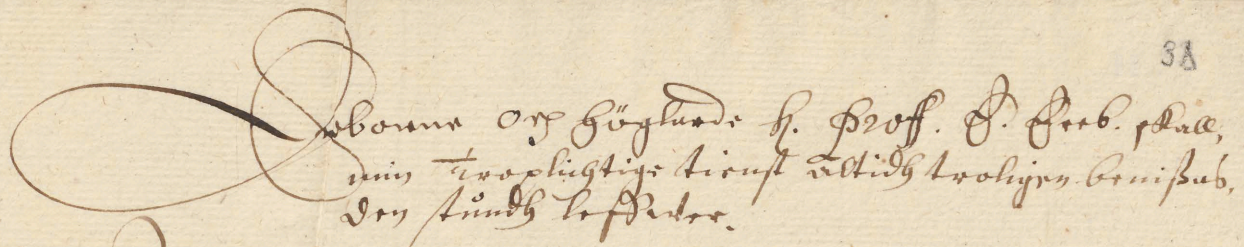 38
Erborne och höglärde h. Proff. E. Ereb. skall,
min Troplichtige tienst altidh troligen beniszas,
den stundh leffwer.